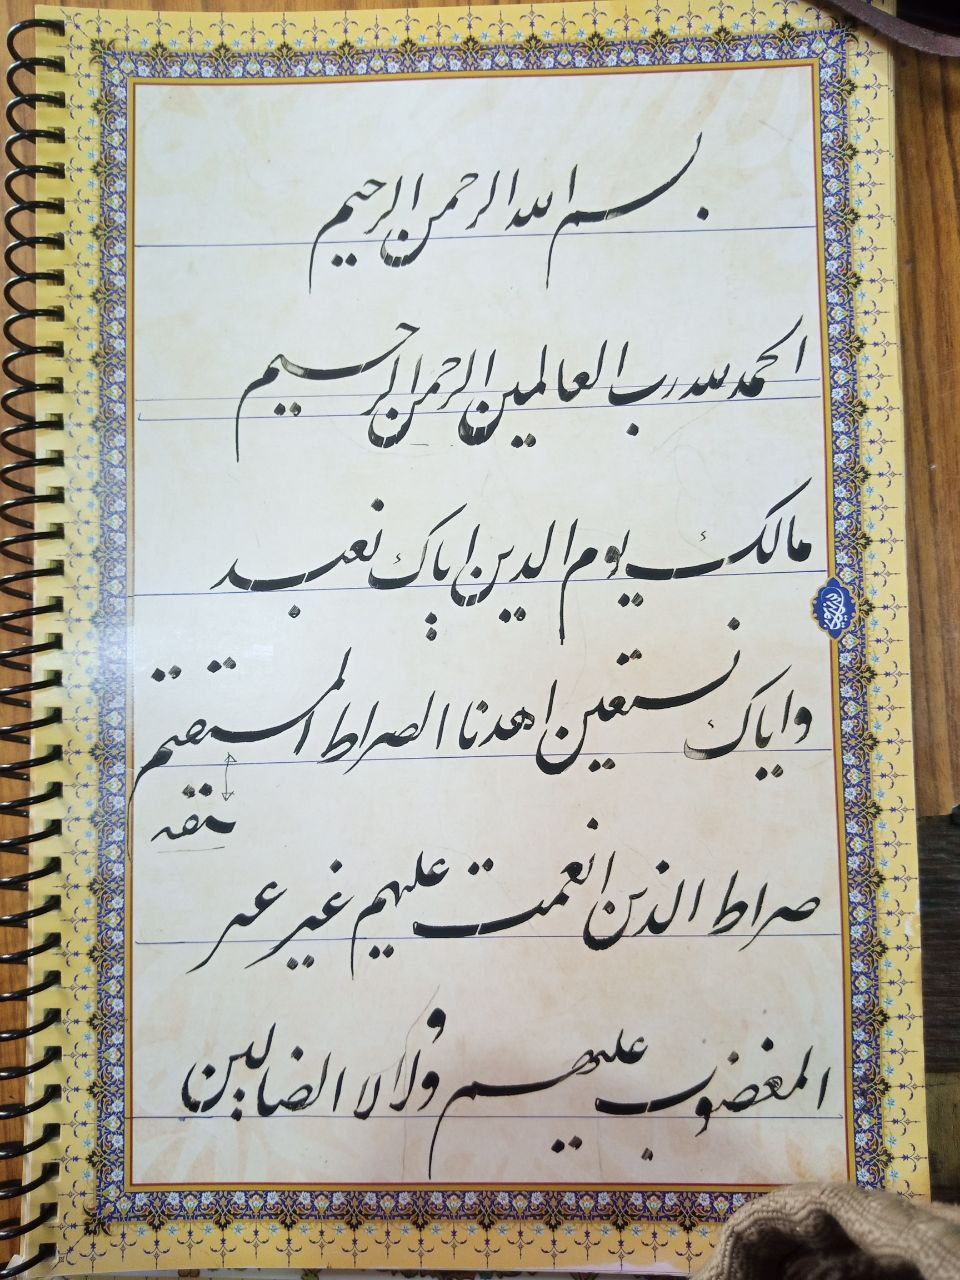 بسم الله الرحمن الرحيم
الحمد لله رب العالمين الرحمن الرحيم
مالك يوم الدين اياك نعبد
واياك نستعين اهدنا الصراط المستقيم
ستقيم
صراط الذين انعمت عليهم غير عير
المغضوب عليهم ولا لا الضالين